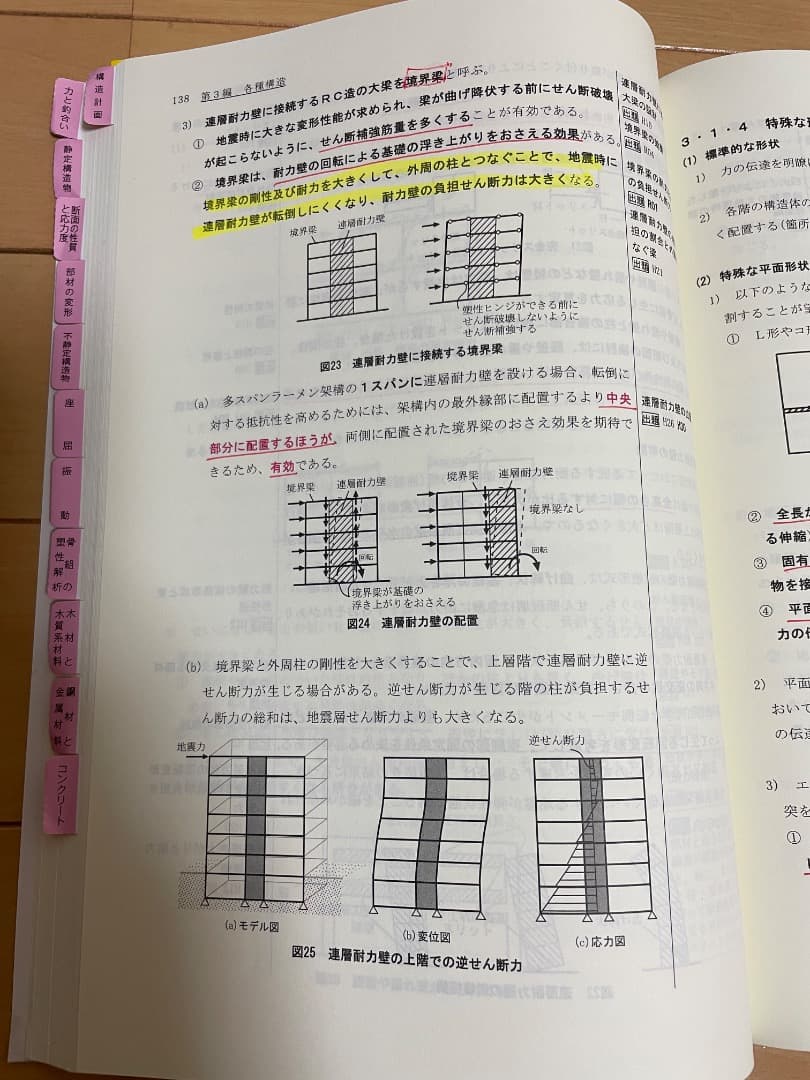 138 第3編 各種構造
3) 連層耐力壁に接続するRC造の大梁を境界梁と呼ぶ。
① 地震時に大きな変形性能が求められ、梁が曲げ降伏する前にせん断破壊
が起こらないように、せん断補強筋量を多くすることが有効である。
② 境界梁は、耐力壁の回転による基礎の浮き上がりをおさえる効果がある。
境界梁の剛性及び耐力を大きくして、外周の柱とつなぐことで、地震時に
連層耐力壁が転倒しにくくなり、耐力壁の負担せん断力は大きくなる。
境界梁
連層耐力壁
塑性ヒンジができる前に
せん断破壊しないように
せん断補強する
図23 連層耐力壁に接続する境界梁
(a) 多スパンラーメン架構の1スパンに連層耐力壁を設ける場合、転倒に
対する抵抗性を高めるためには、架構内の最外縁部に配置するより中央
部分に配置するほうが、両側に配置された境界梁のおさえ効果を期待で
きるため、有効である。
境界梁 連層耐力壁
境界梁 連層耐力壁
境界梁なし
回転
回転
境界梁が基礎の
浮き上がりをおさえる
図24 連層耐力壁の配置
(b) 境界梁と外周柱の剛性を大きくすることで、上層階で連層耐力壁に逆
せん断力が生じる場合がある。逆せん断力が生じる階の柱が負担するせ
ん断力の総和は、地震層せん断力よりも大きくなる。
地震力
逆せん断力
(a)モデル図
(b)変位図
(c)応力図
図25 連層耐力壁の上階での逆せん断力
連層耐力壁
大梁の設計
出題
境界梁の
出題
境界梁の
の負担せん断
出題 R01
連層耐力壁
担の割合と
なぐ梁
出題 H21
連層耐力壁の
出題 H26
構造計画
力と釣合い
静定構造物
断面の性質
と応力度
部材の変形
不静定構造物
座屈
振動
骨組の
塑性解析
木材と
木質系材料
鋼材と
金属材料
コンクリート
3・1・4 特殊な
(1) 標準的な形状
1) 力の伝達を明瞭
2) 各階の構造体の
く配置する(箇所
(2) 特殊な平面形状
1) 以下のような
割することが
① L形やコ
② 全長が
る伸縮
③ 固有
物を接
④ 平面
力の伝
2) 平面
おいて
の伝達
3) エ
突を
①